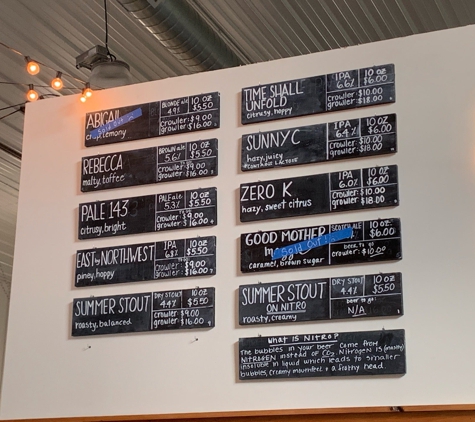 ABIGAIL
Sold Out
lemony
BLONDE ale
4.9%
10 oz
$5.50
crowler $9.00
growler $16.00
REBECCA
malty, toffee
BROWN ale
5.6%
10 oz
$5.50
crowler $9.00
growler $16.00
PALE 143
citrusy, bright
PALE ale
5.3%
10 oz
$5.50
crowler $9.00
growler $16.00
EAST BY NORTHWEST
piney, hoppy
IPA
6.8%
10 oz
$5.50
crowler $9.00
growler $16.00
SUMMER STOUT
roasty, balanced
DRY STOUT
4.4%
10 oz
$5.50
crowler $9.00
growler $16.00
TIME SHALL
UNFOLD
citrusy, hoppy
IPA
6.6%
10 oz
$6.00
crowler $10.00
growler $18.00
SUNNY C
hazy, juicy
*CONTAINS LACTOSE
IPA
6.4%
10 oz
$6.00
crowler $10.00
growler $18.00
ZERO K
hazy, sweet citrus
IPA
6.0%
10 oz
$6.00
crowler $10.00
growler $18.00
GOOD MOTHER
Sold Out
caramel, brown sugar
SCOTCH ALE
10 oz
$6.00
beer to go
crowler $10.00
SUMMER STOUT
ON NITRO
roasty, creamy
DRY STOUT
4.4%
10 oz
$5.50
beer to go
N/A
WHAT IS NITRO?
The bubbles in your beer come from
NITROGEN instead of CO2. Nitrogen is (mostly)
insoluble in liquid which leads to smaller
bubbles, creamy mouthfeel + a frothy head.